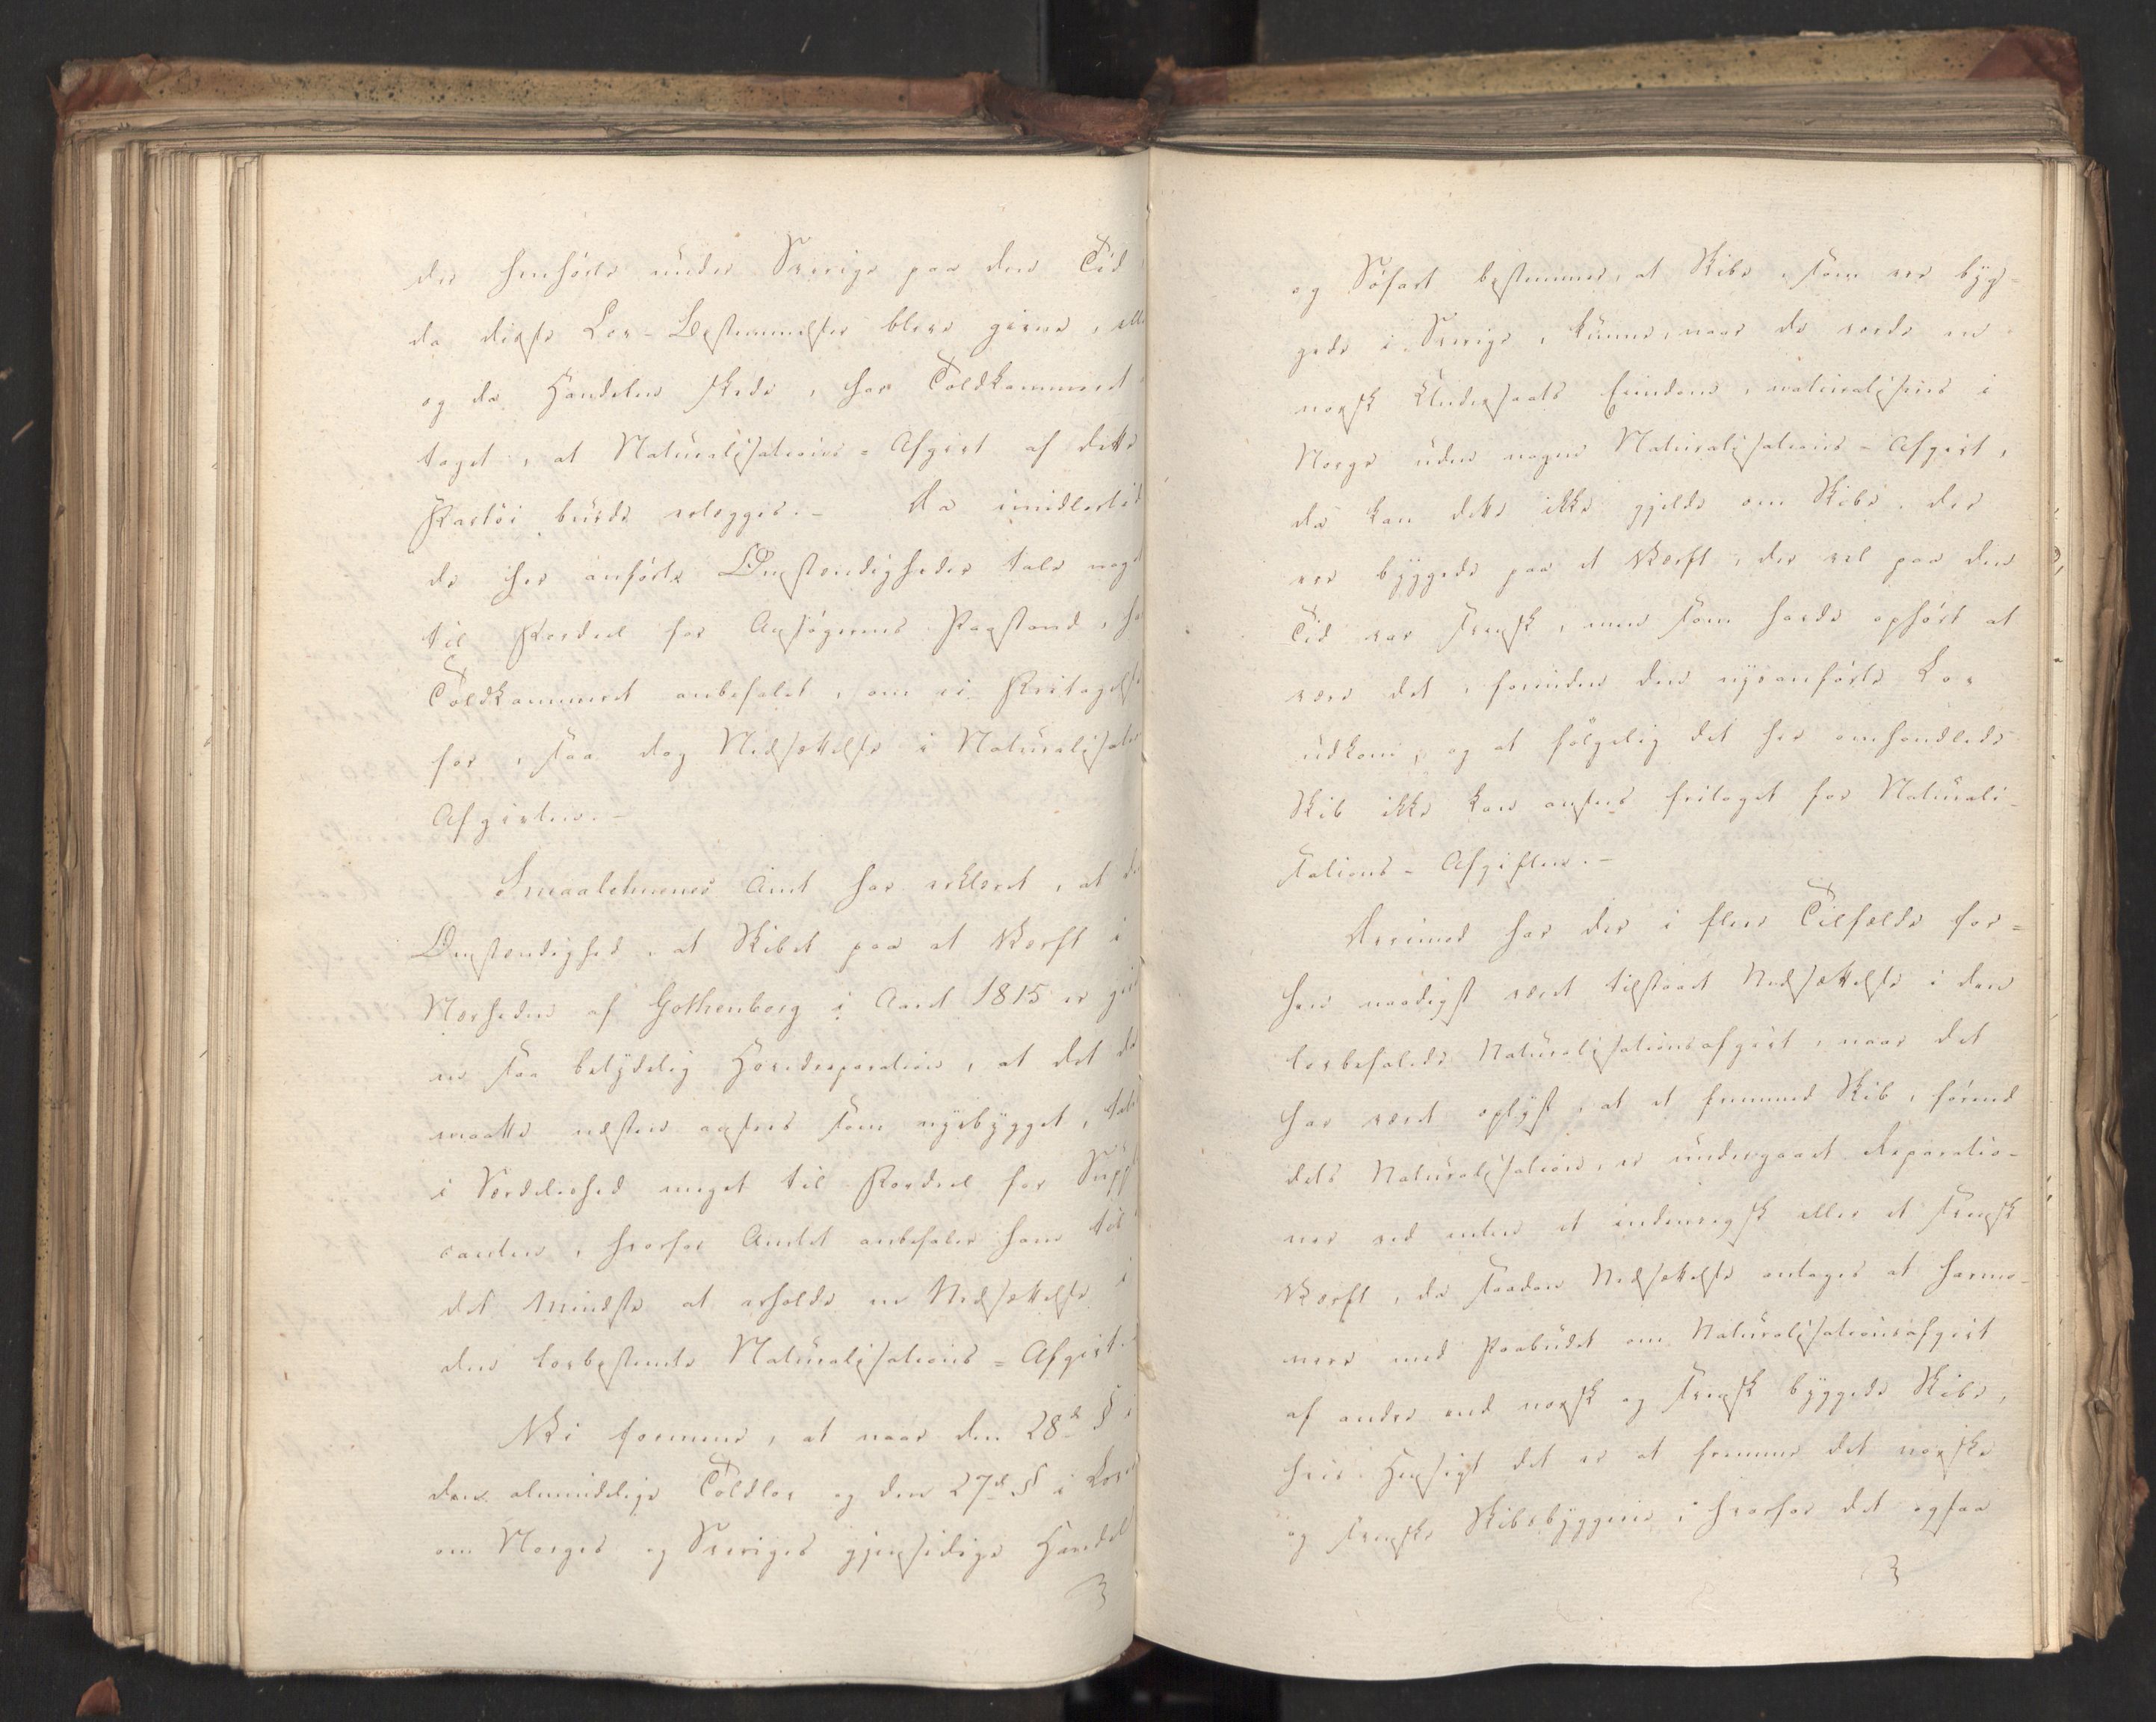 der henhörte under Sverige paa den Tid
da disse Lov-Bestemmelser bleve givne, ell
og da Handelen skede, har Toldkammeret
taget, at Naturalisations-Afgivt af dette
Fartöi burde erlægges.- Da imidlertid
de her anförte Omstændigheder tale noge
til Fordeel for Ansögerens Paastand, ha
Toldkammeret anbefalet, om ei Fritagelse
for, saa dog Nedsættelse i Naturalisatio
Afgivten.-
Smaalehnenes Amt har erklæret, at de
Omstændighed, at Skibet paa et Værft i
Nærheden af Gothenborg i Aaret 1815 er gi
en saa betydelig Hovedreparation, at det da
maatte næsten ansees som nyebygget, tale
i Særdeleshed meget til Fordeel for Supp
canten, hvorfor Amtet anbefaler ham til
det mindste at erholde en Nedsættelse i
den lovbestemte Naturalisations-Afgivt.
Vi formene, at naar den 28de § i
den almindelige Toldlov og den 27de § i Loven
om Norges og Sveriges gjensidige Handel
og Söfart bestemmer, at Skibe, som ere byg-
gede i Sverige, kunne, naar de vorde en
norsk Undersaats Eiendom, naturaliseres i
Norge uden nogen Naturalisations-Afgivt,
da kan dette ikke gjelde om Skibe, der
ere byggede paa et Værft, der vel paa den
Tid var svensk, men som havde ophört at
være det, forinden den nysanförte Lov
udkom, og at fölgelig det her omhandlede
Skib ikke kan ansees fritaget for Naturali-
sations-Afgiften.-
Derimod har der i flere Tilfælde for-
hen naadigst været tilstaaet Nedsættelse i den
lovbefalede Naturalisationsafgivt, naar det
har været oplyst, at et fremmed Skib, förend
dets Naturalisation, er undergaaet Reparatio-
ner ved enten et indenrigsk eller et svensk
Værft, da saadan Nedsættelse antages at harmo-
nere med Paabudet om Naturalisationsafgivt
af andre end norsk og svensk byggede Skibe,
hvis Hensigt det er at fremme det norske
og svenske Skibsbyggerie; hvorfor det ogsaa